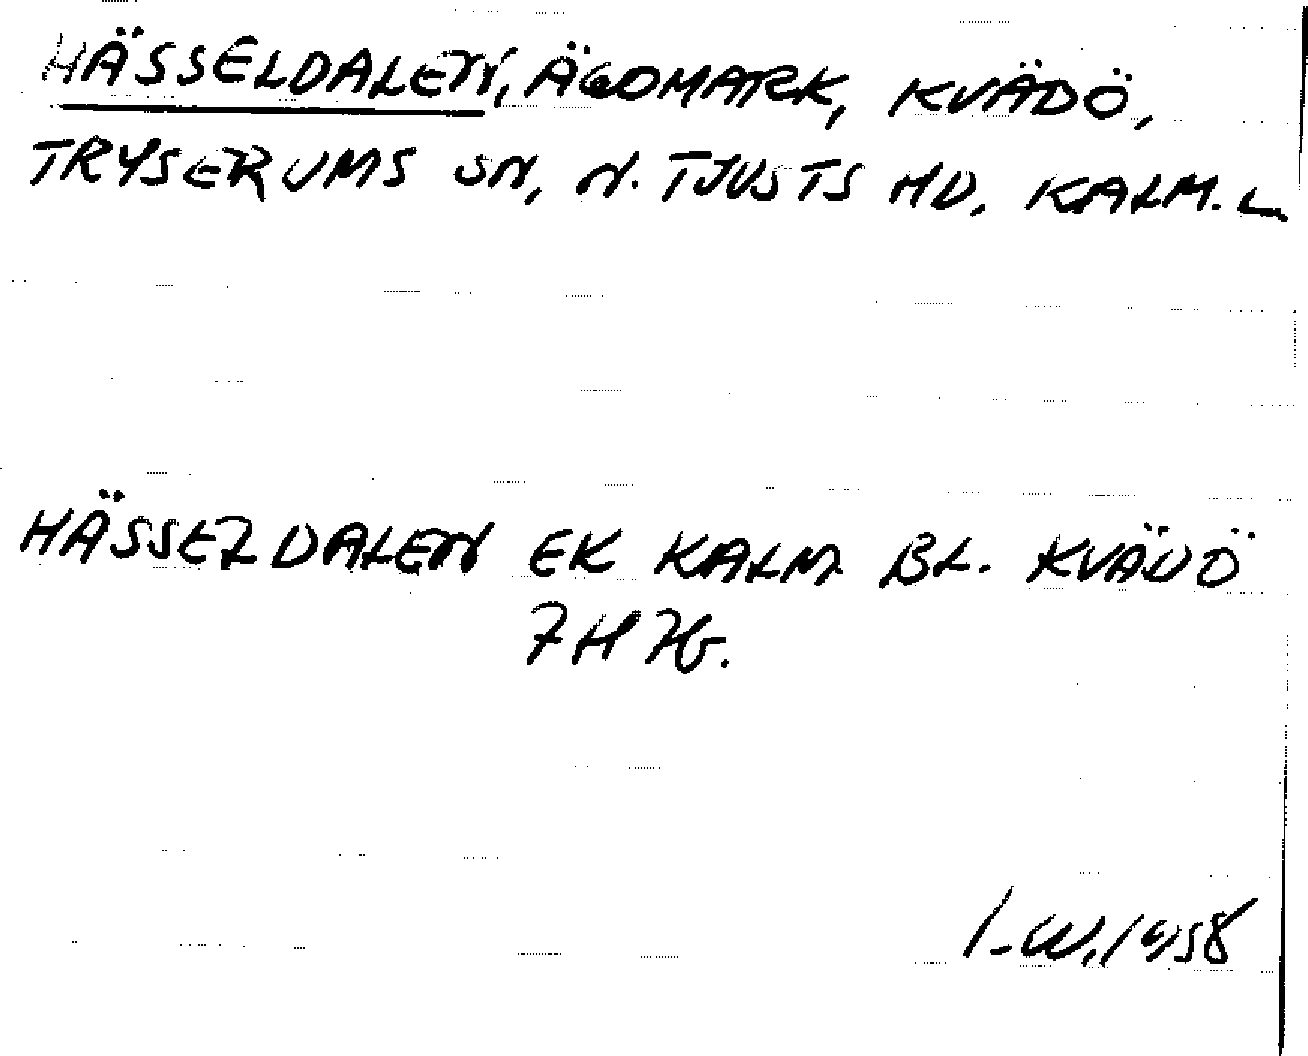 HÄSSELDALEN, ÄGOMARK, KVÄDÖ,
TRYSERUMS SN, N. TJUSTS HD, KALM. L
HÄSSELDALEN EK KALM. BL. KVÄDÖ
7H 7G.
I-W. 1958